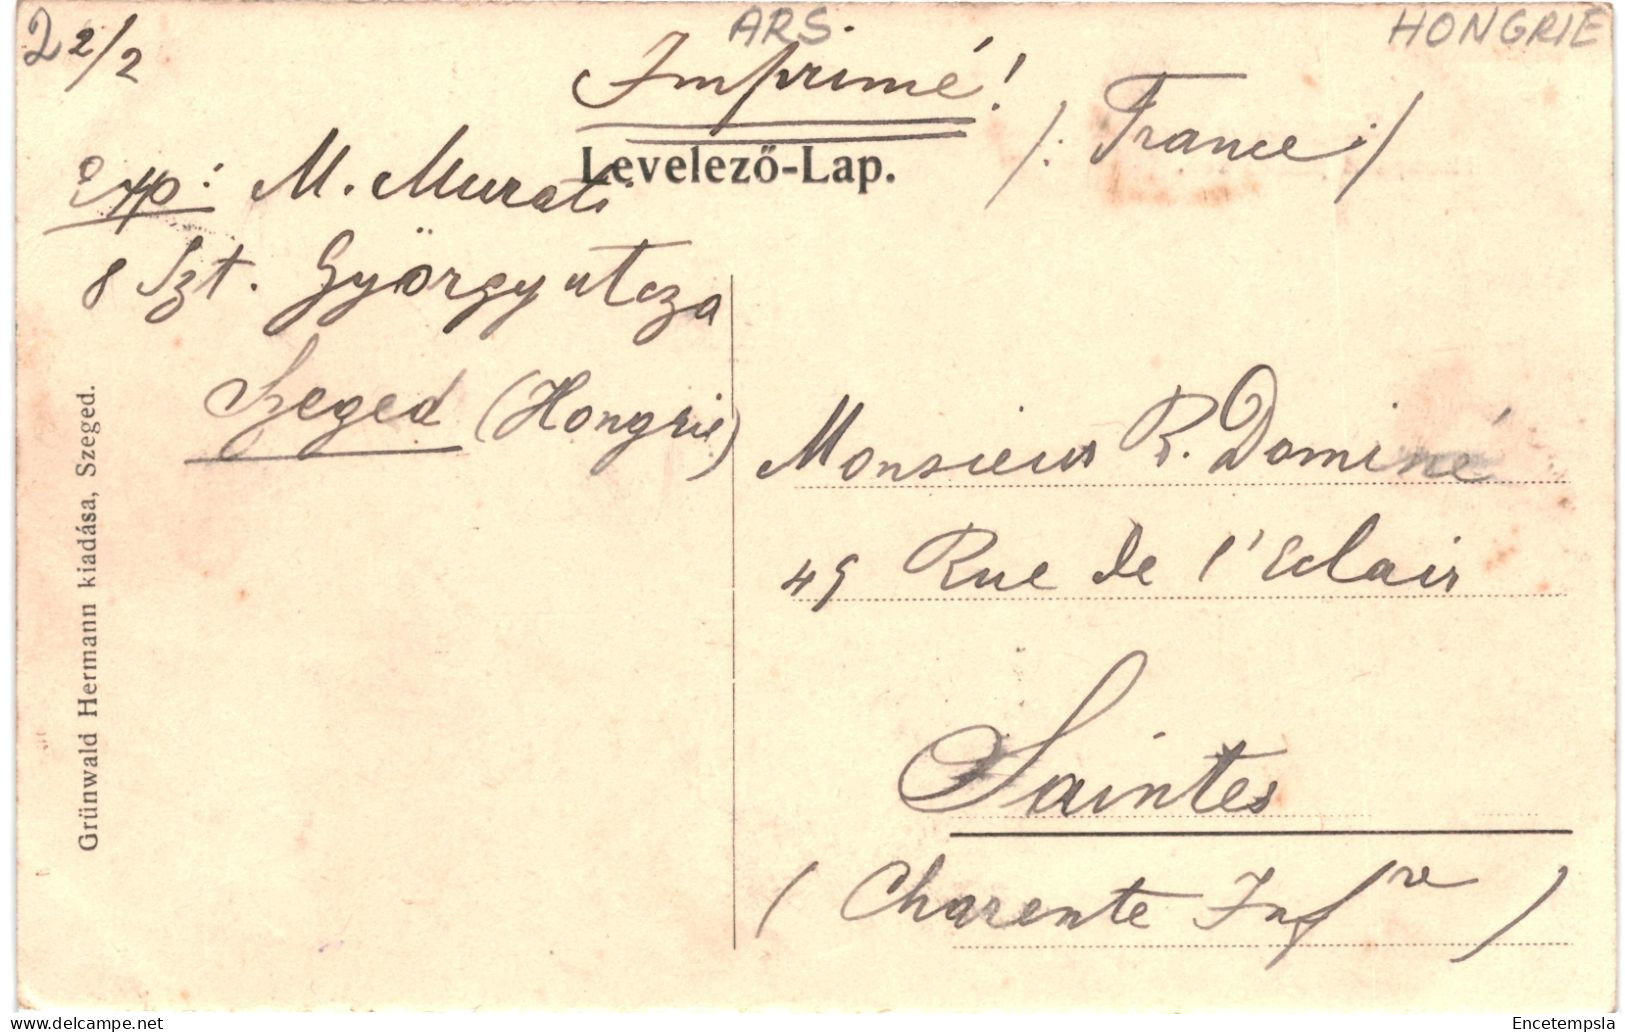 22/2
ARS.
HONGRIE
Imprimé!
/: France :/
Levelező-Lap.
Exp: M. Murati
8 Szt. György utcza
Szeged (Hongrie)
Monsieur R. Dominé
49 Rue de l'Eclair
Saintes
(Charente Infre)
Grünwald Hermann kiadása, Szeged.
delcampe.net
Encetempsla